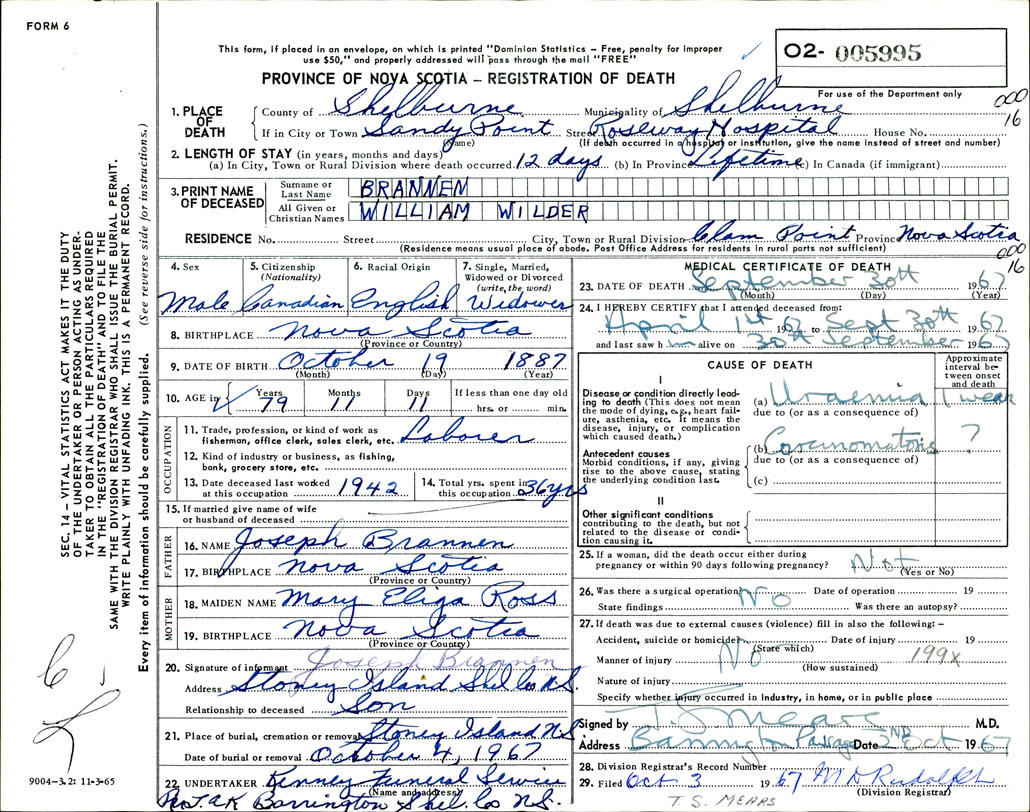 FORM 6
This form, if placed in an envelope, on which is printed "Dominion Statistics – Free, penalty for improper
use $50," and properly addressed will pass through the mail "FREE"
O2- 005995
For use of the Department only
PROVINCE OF NOVA SCOTIA – REGISTRATION OF DEATH
000
16
1. PLACE OF DEATH
County of Shelburne Municipality of Shelburne
If in City or Town Sandy Point Street Roseway Hospital House No.
(Name) (If death occurred in a hospital or institution, give the name instead of street and number)
2. LENGTH OF STAY (in years, months and days)
(a) In City, Town or Rural Division where death occurred 12 days (b) In Province Lifetime (c) In Canada (if immigrant)
3. PRINT NAME OF DECEASED
Surname or Last Name BRANNEN
All Given or Christian Names WILLIAM WILDER
RESIDENCE No. Street City, Town or Rural Division Clam Point Province Nova Scotia
(Residence means usual place of abode. Post Office Address for residents in rural parts not sufficient)
000
16
4. Sex
Male
5. Citizenship
(Nationality)
Canadian
6. Racial Origin
English
7. Single, Married,
Widowed or Divorced
(write, the word)
Widower
8. BIRTHPLACE Nova Scotia
(Province or Country)
9. DATE OF BIRTH October 19 1887
(Month) (Day) (Year)
10. AGE in Years 79 Months 11 Days 11 If less than one day old
hrs. or min.
OCCUPATION
11. Trade, profession, or kind of work as
fisherman, office clerk, sales clerk, etc. Laborer
12. Kind of industry or business, as fishing,
bank, grocery store, etc.
13. Date deceased last worked
at this occupation 1942
14. Total yrs. spent in
this occupation 36 yrs
15. If married give name of wife
or husband of deceased
FATHER
16. NAME Joseph Brannen
17. BIRTHPLACE Nova Scotia
(Province or Country)
MOTHER
18. MAIDEN NAME Mary Eliza Ross
19. BIRTHPLACE Nova Scotia
(Province or Country)
20. Signature of informant Joseph Brannen
Address Stoney Island Shel Co N.S.
Relationship to deceased Son
21. Place of burial, cremation or removal Stoney Island N.S.
Date of burial or removal October 4, 1967
22. UNDERTAKER Kenney Funeral Service
(Name and address)
Barrington Shel. Co N.S.
MEDICAL CERTIFICATE OF DEATH
23. DATE OF DEATH September 30th 1967
(Month) (Day) (Year)
24. I HEREBY CERTIFY that I attended deceased from:
April 14 1967 to Sept 30th 1967
and last saw him alive on 30th September 1967
CAUSE OF DEATH
Approximate
interval be-
tween onset
and death
I
Disease or condition directly lead-
ing to death (This does not mean
the mode of dying, e.g., heart fail-
ure, asthenia, etc. It means the
disease, injury, or complication
which caused death.)
(a) Uraemia 1 week
due to (or as a consequence of)
Antecedent causes
Morbid conditions, if any, giving
rise to the above cause, stating
the underlying condition last.
(b) Carcinomatosis ?
due to (or as a consequence of)
(c)
II
Other significant conditions
contributing to the death, but not
related to the disease or condi-
tion causing it.
25. If a woman, did the death occur either during
pregnancy or within 90 days following pregnancy?
(Yes or No)
26. Was there a surgical operation? No Date of operation 19
State findings Was there an autopsy?
27. If death was due to external causes (violence) fill in also the following: –
Accident, suicide or homicide? No Date of injury 19
(State which)
Manner of injury 199X
(How sustained)
Nature of injury
Specify whether injury occurred in industry, in home, or in public place
Signed by T. S. Mears M.D.
Address Barrington Passage Date 2ND Oct 1967
28. Division Registrar's Record Number
29. Filed Oct 3 1967 M D Rudolph
(Division Registrar)
T. S. MEARS
SEC. 14 – VITAL STATISTICS ACT MAKES IT THE DUTY
OF THE UNDERTAKER OR PERSON ACTING AS UNDER-
TAKER TO OBTAIN ALL THE PARTICULARS REQUIRED
IN THE "REGISTRATION OF DEATH" AND TO FILE THE
SAME WITH THE DIVISION REGISTRAR WHO SHALL ISSUE THE BURIAL PERMIT.
WRITE PLAINLY WITH UNFADING INK. THIS IS A PERMANENT RECORD.
Every item of information should be carefully supplied. (See reverse side for instructions.)
9004-3.2: 11-3-65